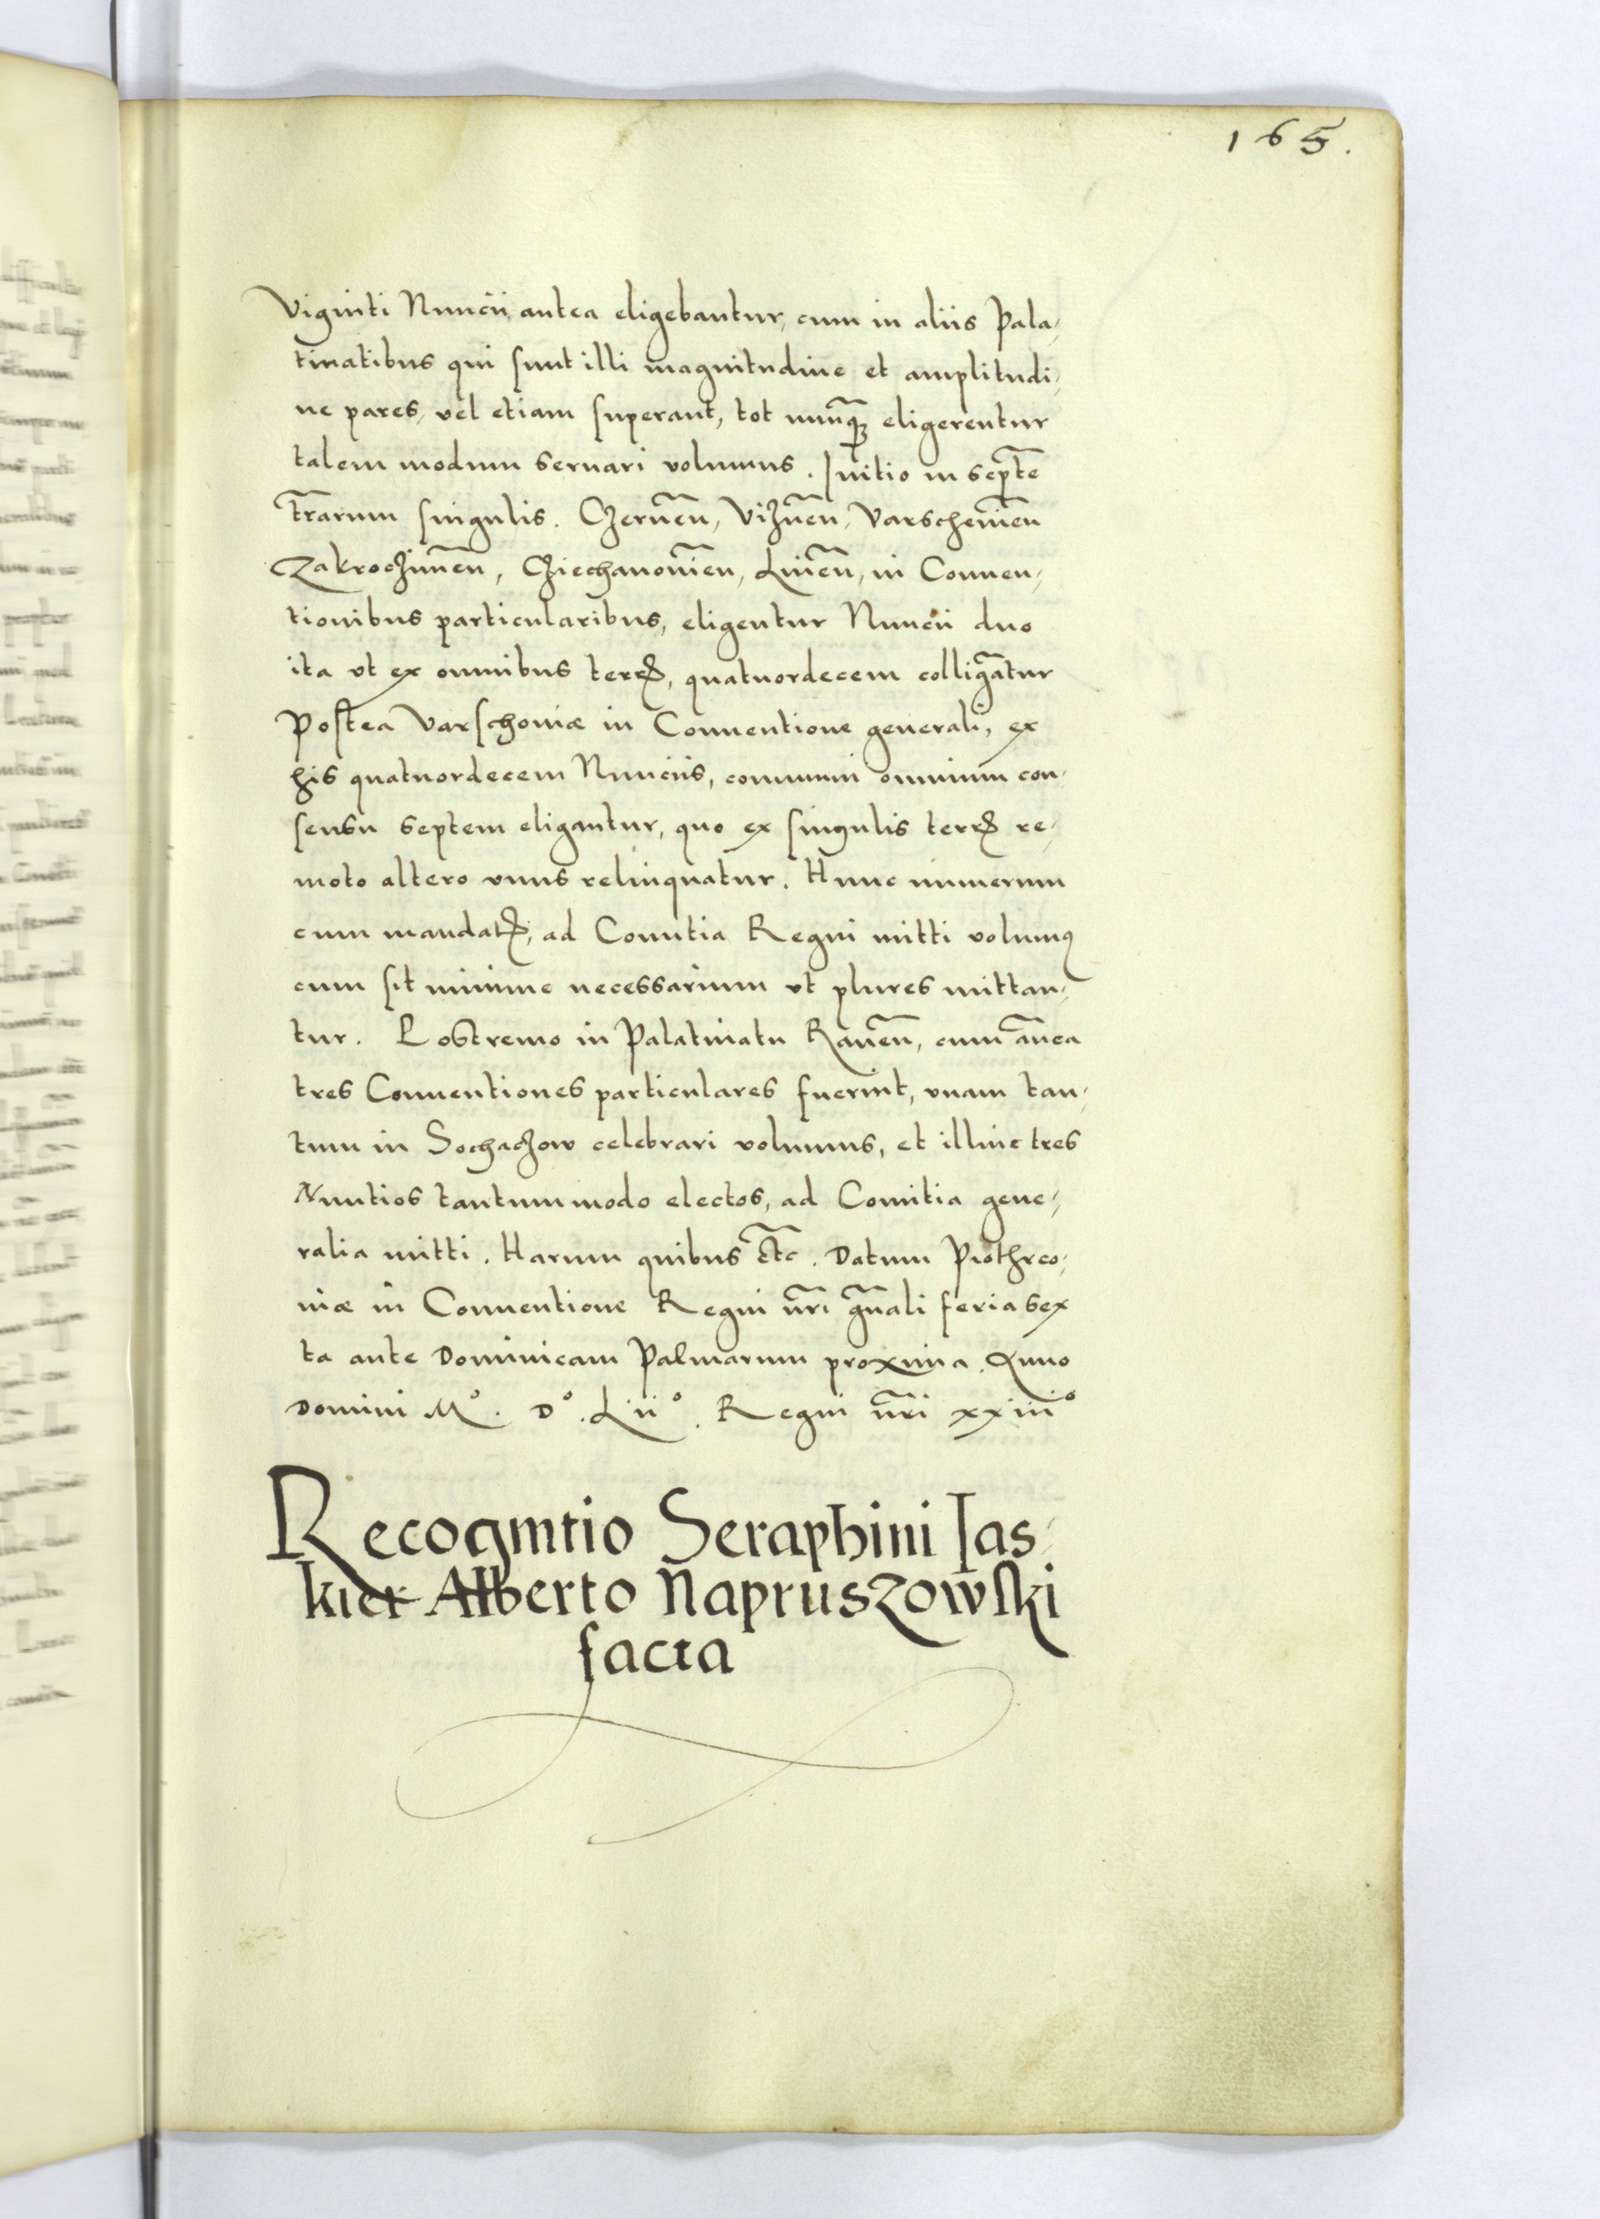 165.
Viginti Nuncii antea eligebantur, cum in aliis Pala,
tinatibus qui sunt illi magnitudine et amplitudi,
ne pares, vel etiam superant, tot nunq̃ eligerentur
talem modum servari volumus. Initio in septe
tr̃arum singulis. Czerneñ, Vizneñ, Varschevieñ
Zakroczimeñ, Cziechanovieñ, Liveñ, in Conven,
tionibus particularibus, eligentur Nuncii duo
ita ut ex omnibus terrꝭ, quatuordecem colligãtur
Postea Varschoviæ in Conventione generali, ex
his quatuordecem Nunciis, communi omnium con,
sensu septem eligantur, quo ex singulis terrꝭ re,
moto altero unus relinquatur. Hunc numerum
cum mandatꝭ, ad Comitia Regni mitti volumꝰ
cum sit minime necessarium ut plures mittan,
tur. Postremo in Palatinatu Raveñ, cum añea
tres Conventiones particulares fuerint, unam tan,
tum in Sochaczow celebrari volumus, et illinc tres
Nuntios tantummodo electos, ad Comitia gene,
ralia mitti. Harum quibus etc̃. Datum Piothrco,
viæ in Conventione Regni nr̃i gñali feria sex
ta ante Dominicam Palmarum proxima. Anno
Domini Mº. Dº. Liiº. Regni nr̃i xxiiiº
Recognitio Seraphini Jas,
kier Alberto Napruszowski
facta